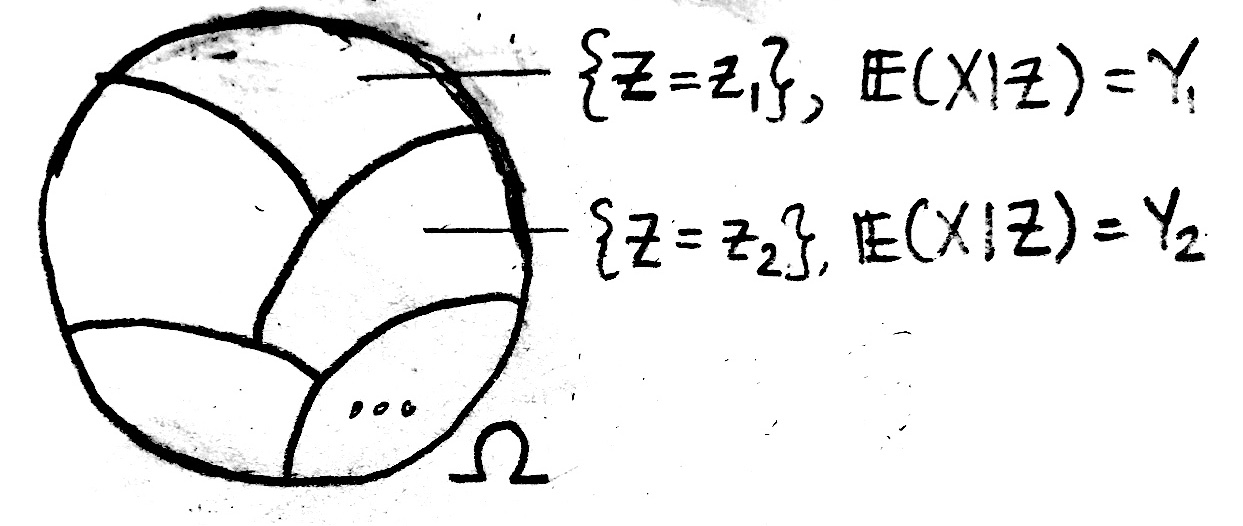 {Z = z₁}, 𝔼(X|Z) = Y₁
{Z = z₂}, 𝔼(X|Z) = Y₂
...
Ω